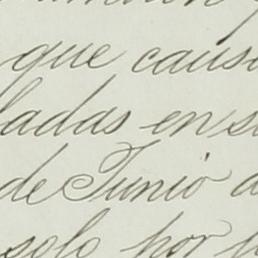 que caus
ladas en s
de Junio
solo por